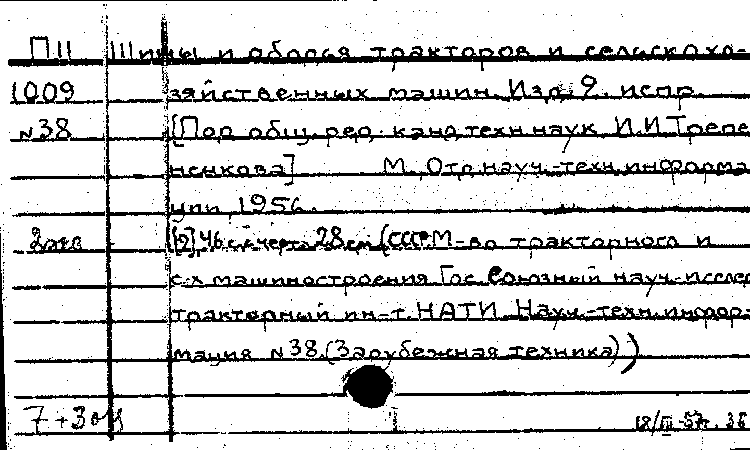 П11 Шины и ободья тракторов и сельскохо-
1009 зяйственных машин. Изд. 2. испр.
№38 [Под общ. ред. канд. техн. наук И.И. Трепе
ненкова] М., Отд. науч.-техн. информа
ции, 1956.
2экз [2], 46 с. с черт. 28 см. (СССР. М-во тракторного и
с-х машиностроения Гос. Союзный науч.-исслед
тракторный ин-т. НАТИ. Науч.-техн. инфор
мация №38. (Зарубежная техника))
7+3
18/III-57г.